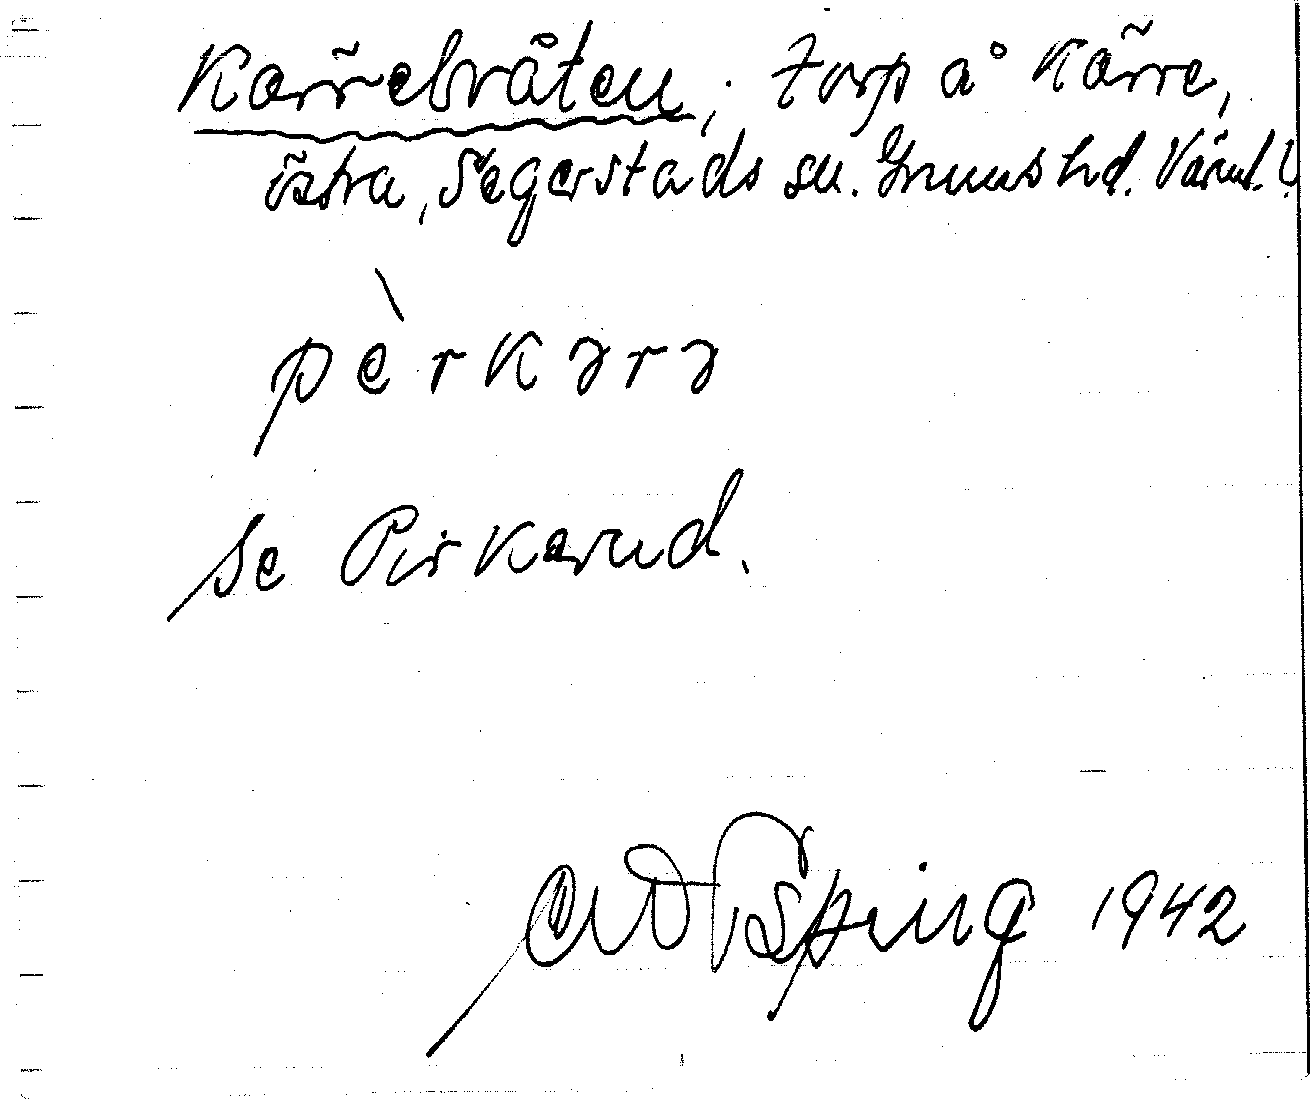 Kärrebråten, torp å Kärre,
östra, Segerstads sn. Grums hd. Värml.
pèrkərə
se Pirkarud.
1942